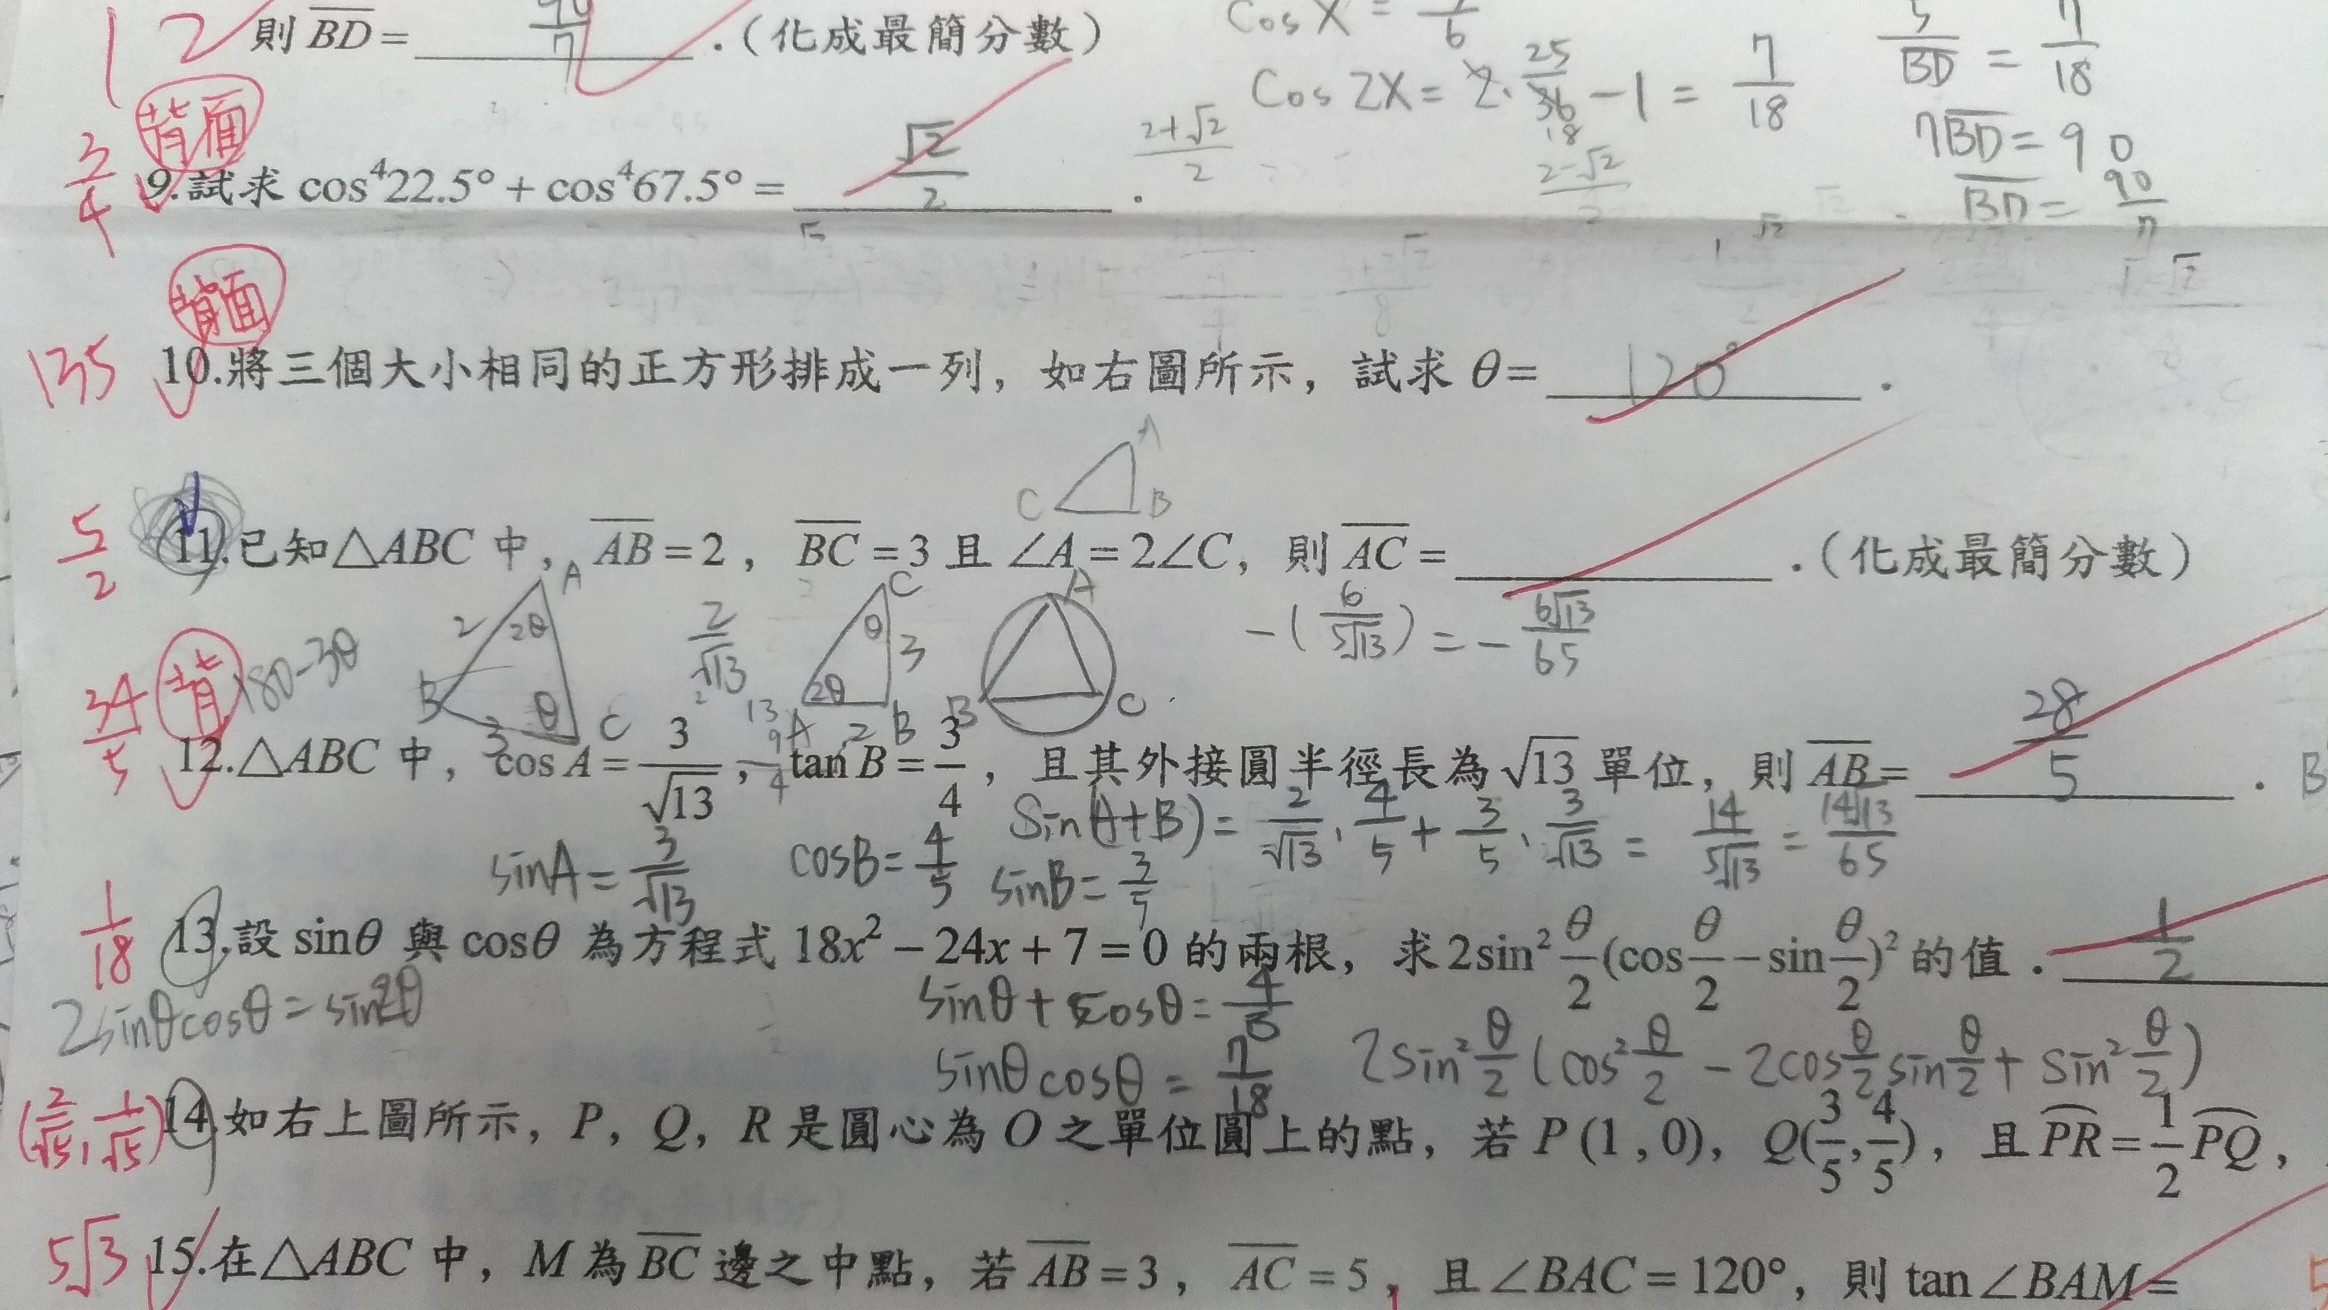 12 則 BD = 90/7 .(化成最簡分數)
cos X = 5/6
cos 2X = 2·25/36 - 1 = 7/18
5/BD = 7/18
7BD = 90
BD = 90/7
背面
3/4 9.試求 cos⁴22.5° + cos⁴67.5° = √2/2 .
2+√2/2
2-√2/2
背面
135 10.將三個大小相同的正方形排成一列，如右圖所示，試求 θ= 120° .
A
C B
5/2 11.已知△ABC 中，AB = 2，BC = 3 且 ∠A = 2∠C，則 AC = .(化成最簡分數)
A 2 2θ B 3 θ C
180-3θ
2/√13
C θ 3 2θ A 2 B
A B C
-(6/5√13) = -6√13/65
背
34/5 12.△ABC 中，cos A = 3/√13，tan B = 3/4，且其外接圓半徑長為 √13 單位，則 AB = 28/5 . B
sinA = 3/√13 cosB = 4/5 sinB = 3/5
Sin(A+B) = 2/√13 · 4/5 + 3/5 · 3/√13 = 14/5√13 = 14√13/65
1/18 13.設 sinθ 與 cosθ 為方程式 18x² - 24x + 7 = 0 的兩根，求 2sin² θ/2 (cos θ/2 - sin θ/2)² 的值 . 1/2
2sinθcosθ = sin2θ
sinθ + cosθ = 4/3
sinθcosθ = 7/18
2sin² θ/2 (cos² θ/2 - 2cos θ/2 sin θ/2 + sin² θ/2)
(2/√5, 1/√5) 14.如右上圖所示，P，Q，R 是圓心為 O 之單位圓上的點，若 P (1 , 0)，Q(3/5, 4/5)，且 PR = 1/2 PQ，
5√3 15.在△ABC 中，M 為 BC 邊之中點，若 AB = 3，AC = 5，且 ∠BAC = 120°，則 tan ∠BAM =